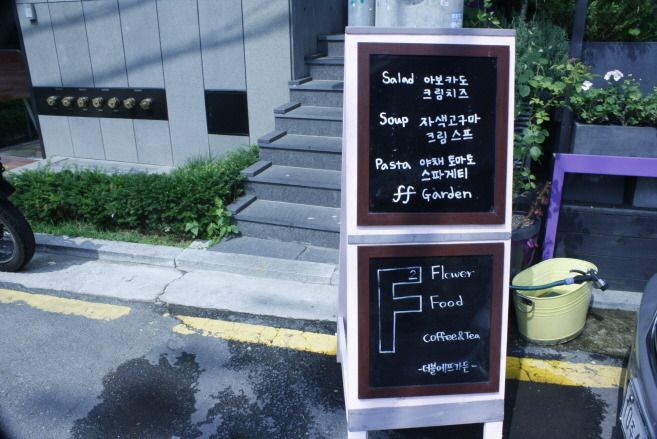 Salad 아보카도
크림치즈
Soup 자색고구마
크림 스프
Pasta 야채 토마도
스파게티
ff Garden
F2 Flower
Food
Coffee&Tea
-더블에프가든-